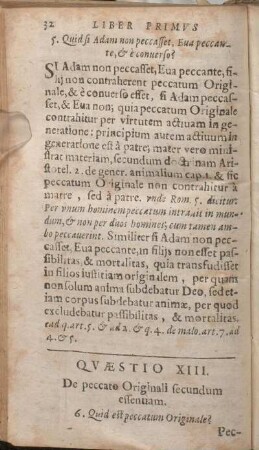 32 LIBER PRIMVS
5. Quid si Adam non peccasset, Eua peccan-
te, & è conuerso?
SI Adam non peccasset, Eua peccante, fi-
lij non contraherent peccatum Origi-
nale, & è conuerso esset, si Adam peccas-
set, & Eua non; quia peccatum Originale
contrahitur per virtutem actiuam in ge-
neratione: principium autem actiuum in
generatione est à patre, mater vero mini-
strat materiam, secundum doctrinam Arist-
otel. 2. de gener. animalium cap. 1. & sic
peccatum Originale non contrahitur à
matre, sed à patre. vnde Rom. 5. dicitur:
Per vnum hominem peccatum intrauit in mun-
dum, & non per duos homines, cum tamen am-
bo peccauerint. Similiter si Adam non pec-
casset, Eua peccante, in filijs non esset pas-
sibilitas, & mortalitas, quia transfudisset
in filios iustitiam originalem, per quam
non solum anima subdebatur Deo, sed et-
iam corpus subdebatur animæ, per quod
excludebatur passibilitas, & mortalitas.
ead. q. art. 5. & ad 2. & q. 4. de malo. art. 7. ad
4. & 5.
QVÆSTIO XIII.
De peccato Originali secundum
essentiam.
6. Quid est peccatum Originale?
Pec-